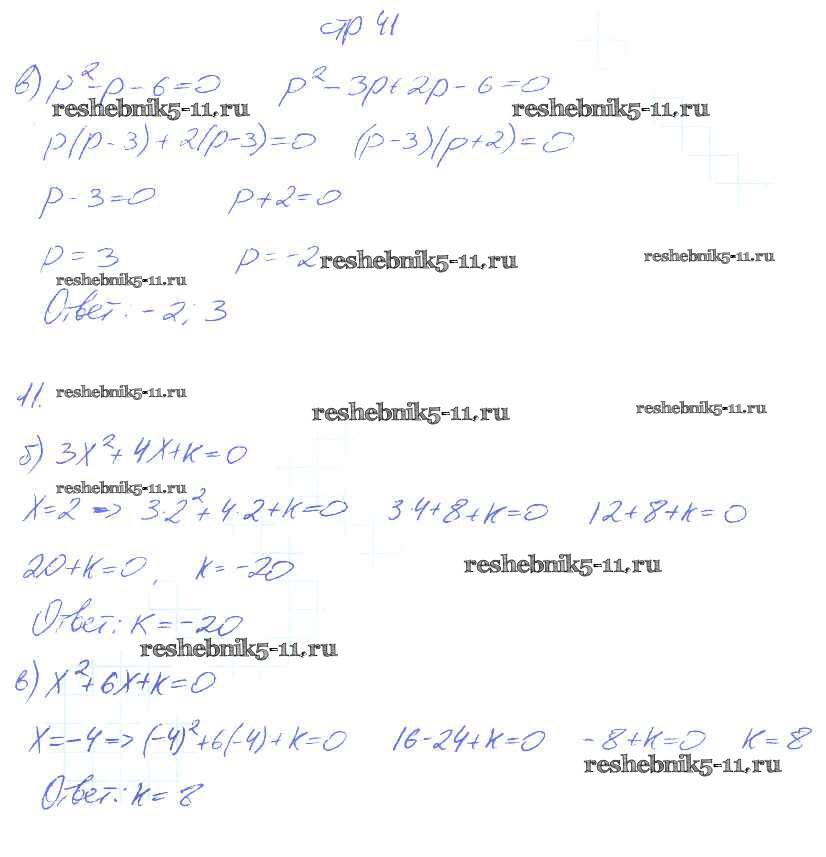 стр 41
в) p² - p - 6 = 0 p² - 3p + 2p - 6 = 0
reshebnik5-11.ru reshebnik5-11.ru
p(p - 3) + 2(p - 3) = 0 (p - 3)(p + 2) = 0
p - 3 = 0 p + 2 = 0
p = 3 p = -2 reshebnik5-11.ru reshebnik5-11.ru
reshebnik5-11.ru
Ответ: -2; 3
11. reshebnik5-11.ru reshebnik5-11.ru reshebnik5-11.ru
б) 3x² + 4x + k = 0
reshebnik5-11.ru
x = 2 => 3·2² + 4·2 + k = 0 3·4 + 8 + k = 0 12 + 8 + k = 0
20 + k = 0, k = -20 reshebnik5-11.ru
Ответ: k = -20
reshebnik5-11.ru
в) x² + 6x + k = 0
x = -4 => (-4)² + 6(-4) + k = 0 16 - 24 + k = 0 -8 + k = 0 k = 8
reshebnik5-11.ru
Ответ: k = 8